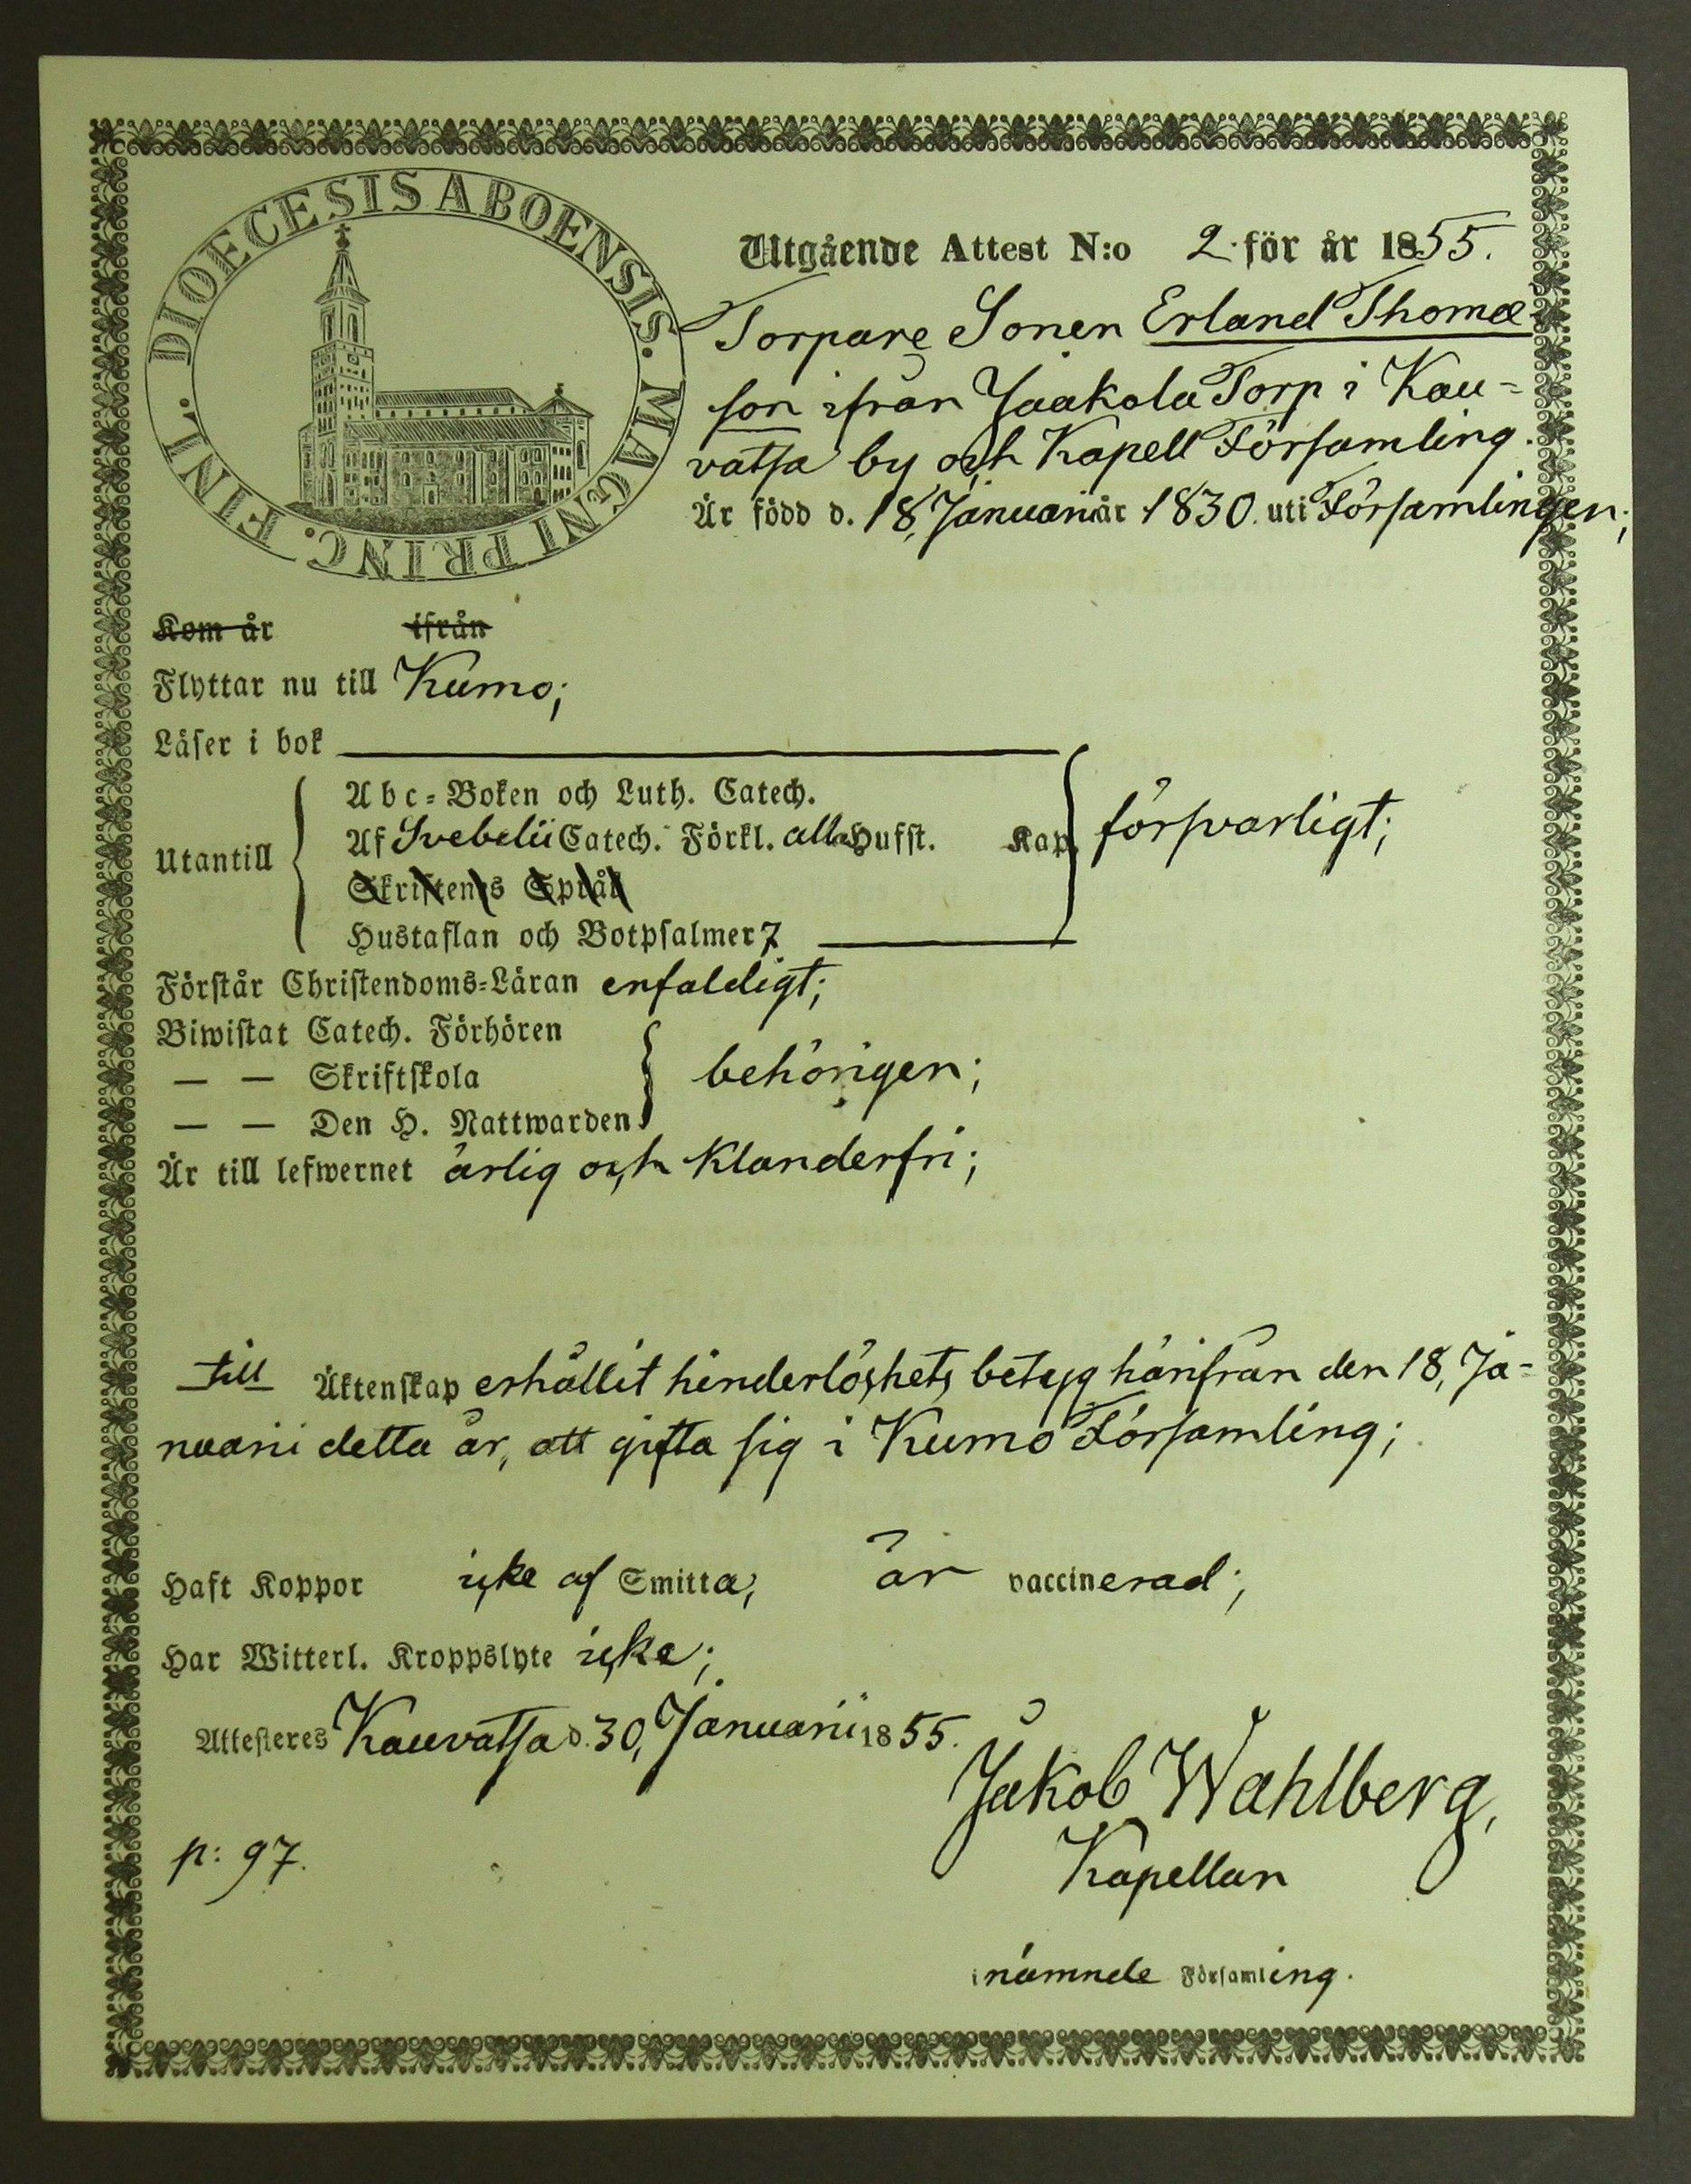 DIOECESIS ABOENSIS. MAGNI PRINC. FINL.
Utgående Attest N:o 2. för år 1855.
Torpare Sonen Erland Thomæ
son ifrån Jaakola Torp i Kau-
vatsa by och Kapell Församling.
Är född d. 18, Januarii år 1830. uti Församlingen;
Kom år ifrån
Flyttar nu till Kumo;
Läser i bok
Utantill
Abc-Boken och Luth. Catech.
Af Svebelii Catech. Förkl. alla Hufst. Kap. försvarligt;
Skriftenes Språk
Hustaflan och Botpsalmer 7
Förstår Christendoms-Läran enfaldigt;
Biwistat Catech. Förhören
— — Skriftskola behörigen;
— — Den H. Nattwarden
Är till lefwernet ärlig och klanderfri;
till Äktenskap erhållit hinderlöshets betyg härifrån den 18, Ja-
nuarii detta år, att gifta sig i Kumo Församling;
Haft Koppor icke af Smitta, är vaccinerad;
Har Witterl. Kroppslyte icke;
Attesteres Kauvatsa d. 30, Januarii 1855.
Jakob Wahlberg,
p: 97.
Kapellan
i nämnde Församling.